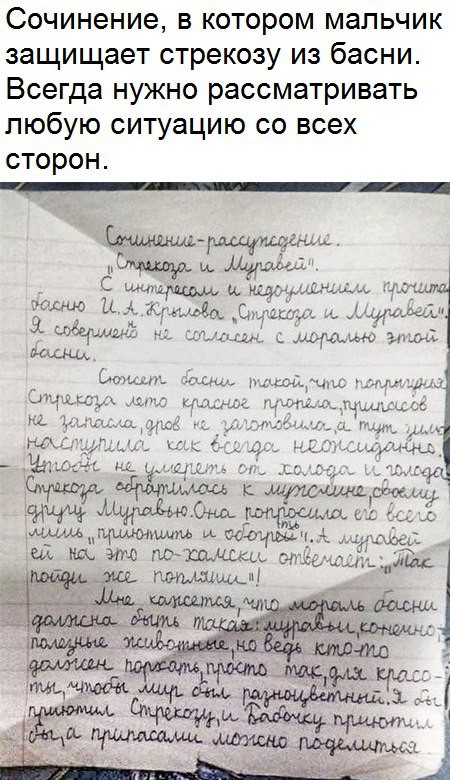 Сочинение, в котором мальчик
защищает стрекозу из басни.
Всегда нужно рассматривать
любую ситуацию со всех
сторон.
Сочинение-рассуждение.
„Стрекоза и Муравей".
С интересом и недоумением прочитал
басню И.А.Крылова „Стрекоза и Муравей".
Я совершенно не согласен с моралью этой
басни.
Сюжет басни такой, что попрыгунья
Стрекоза лето красное пропела, припасов
не запасла, дров не заготовила, а тут зима
наступила как всегда неожиданно.
Чтобы не умереть от холода и голода
Стрекоза обратилась к мужчине, своему
другу Муравью. Она попросила его всего
лишь „приютить и обогреть". А муравей
ей на это по-хамски отвечает: „Так
пойди же попляши"!
Мне кажется, что мораль басни
должна быть такая: муравьи, конечно,
полезные животные, но ведь кто-то
должен порхать, просто так, для красо-
ты, чтобы мир был разноцветный. Я бы
приютил Стрекозу, и Бабочку приютил
бы, а припасами можно поделиться.